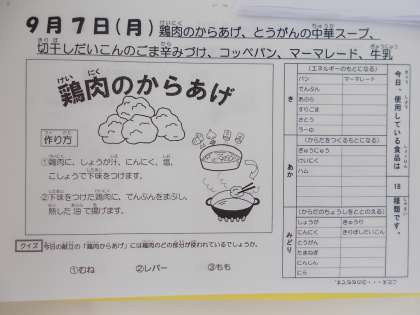 9月7日(月)鶏肉のからあげ、とうがんの中華スープ、
切干しだいこんのごま辛みづけ、コッペパン、マーマレード、牛乳
鶏肉のからあげ
作り方
①鶏肉に、しょうが汁、にんにく、塩、
こしょうで下味をつけます。
②下味をつけた鶏肉に、でんぷんをまぶし、
熱した油で揚げます。
クイズ 今日の献立の「鶏肉からあげ」には鶏肉のどの部分が使われているでしょうか。
①むね ②レバー ③もも
今日、使用している食品は
18
種類です。
き
(エネルギーのもとになる)
パン マーマレード
でんぷん
あぶら
すりごま
さとう
ラーゆ
あか
(からだをつくるもとになる)
ぎゅうにゅう
けいにく
ハム
みどり
(からだのちょうしをととのえる)
しょうが きゅうり
にんにく きりぼしだいこん
とうがん
たまねぎ
にんじん